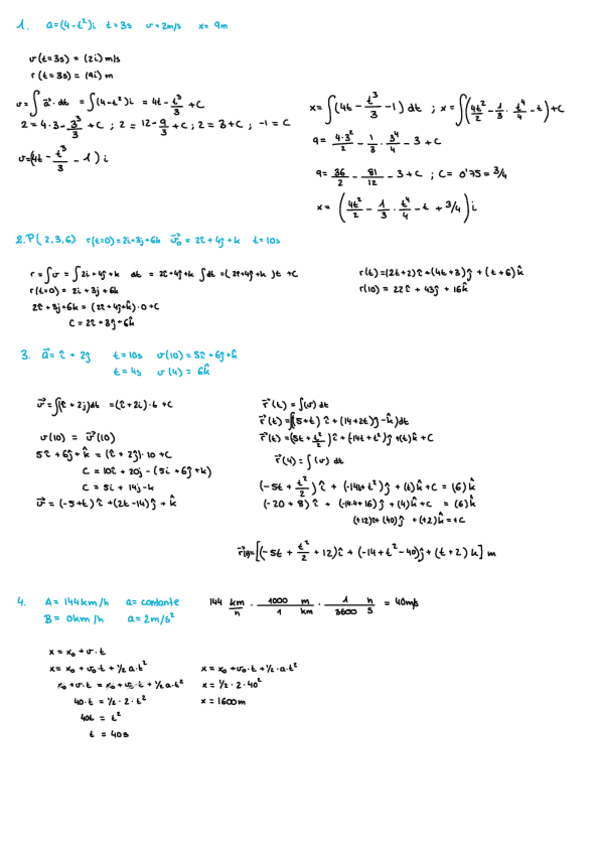 1. a=(4-t²)i t=3s v=2m/s x=9m
v(t=3s) = (2i) m/s
r(t=3s) = (9i) m
v=∫a·dt = ∫(4-t²)i = 4t - t³/3 + C
2=4·3 - 3³/3 + C ; 2 = 12 - 9/3 + C ; 2=3+C ; -1=C
v=(4t - t³/3 - 1) i
x=∫(4t - t³/3 - 1) dt ; x=∫(4t²/2 - 1/3 · t⁴/4 - t)+C
9= 4·3²/2 - 1/3 · 3⁴/4 - 3 + C
9= 36/2 - 81/12 - 3 + C ; C= 0'75 = 3/4
x= (4t²/2 - 1/3 · t⁴/4 - t + 3/4) i
2. P(2,3,6) r(t=0)=2i+3j+6k v₀ = 2î + 4ĵ + k t=10s
r=∫v = ∫2i+4j+k dt = 2î+4ĵ+k ∫dt =(2î+4ĵ+k)t +C
r(t=0) = 2i + 3j + 6k
2î+3j+6k = (2î+4j+k̂)·0+C
C = 2î+3ĵ+6k̂
r(t)=(2t+2)î+(4t+3)ĵ+(t+6)k̂
r(10) = 22î + 43ĵ + 16k̂
3. a⃗= î + 2ĵ t=10s v(10)=5î+6ĵ+k̂
t=4s v(4) = 6k̂
v⃗=∫(î+2j)dt =(î+2i)·t +C
v(10) = v⃗(10)
5î+6ĵ+k̂ = (î+2ĵ)·10+C
C = 10î+20j-(5i+6ĵ+k)
C = 5i + 14j-k
v⃗ = (-5+t)î+(2t-14)ĵ+k̂
r⃗(t) = ∫(v) dt
r⃗(t) =∫(5+t)î+(14+2t)ĵ-k̂)dt
r⃗(t) =(5t+t²/2)î+(-14t+t²)ĵ+(t)k̂+C
r⃗(4) = ∫(v) dt
(-5t+t²/2)î + (-14t+t²)ĵ+(t)k̂+C = (6)k̂
(-20+8)î + (-14·4+16)ĵ+(4)k̂+C = (6)k̂
(+12)î+(40)ĵ+(+2)k̂=+C
r(t)=[(-5t+t²/2+12)î+(-14+t²-40)ĵ+(t+2)k] m
4. A= 144km/h a= contante
B= 0km/h a=2m/s²
144 km/h · 1000/1 m/km · 1/3600 h/s = 40m/s
x = x₀+v·t
x= x₀ + v₀·t + ½a·t²
x₀+v·t = x₀+v₀·t + ½a·t²
40·t = ½·2·t²
40t = t²
t = 40s
x = x₀+v₀·t+½·a·t²
x = ½·2·40²
x = 1600m